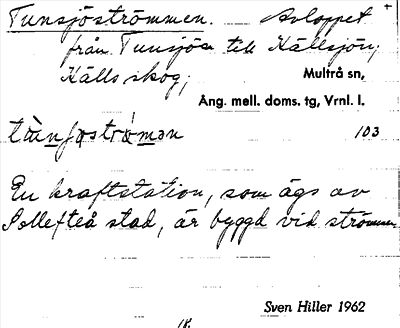 Tunsjöströmmen. Avloppet
från Tunsjön till Källsjön;
Källs skog;
Multrå sn,
Ång. mell. doms. tg, Vrnl. l.
103
En kraftstation, som ägs av
Sollefteå stad, är byggd vid strömmen
Sven Hiller 1962